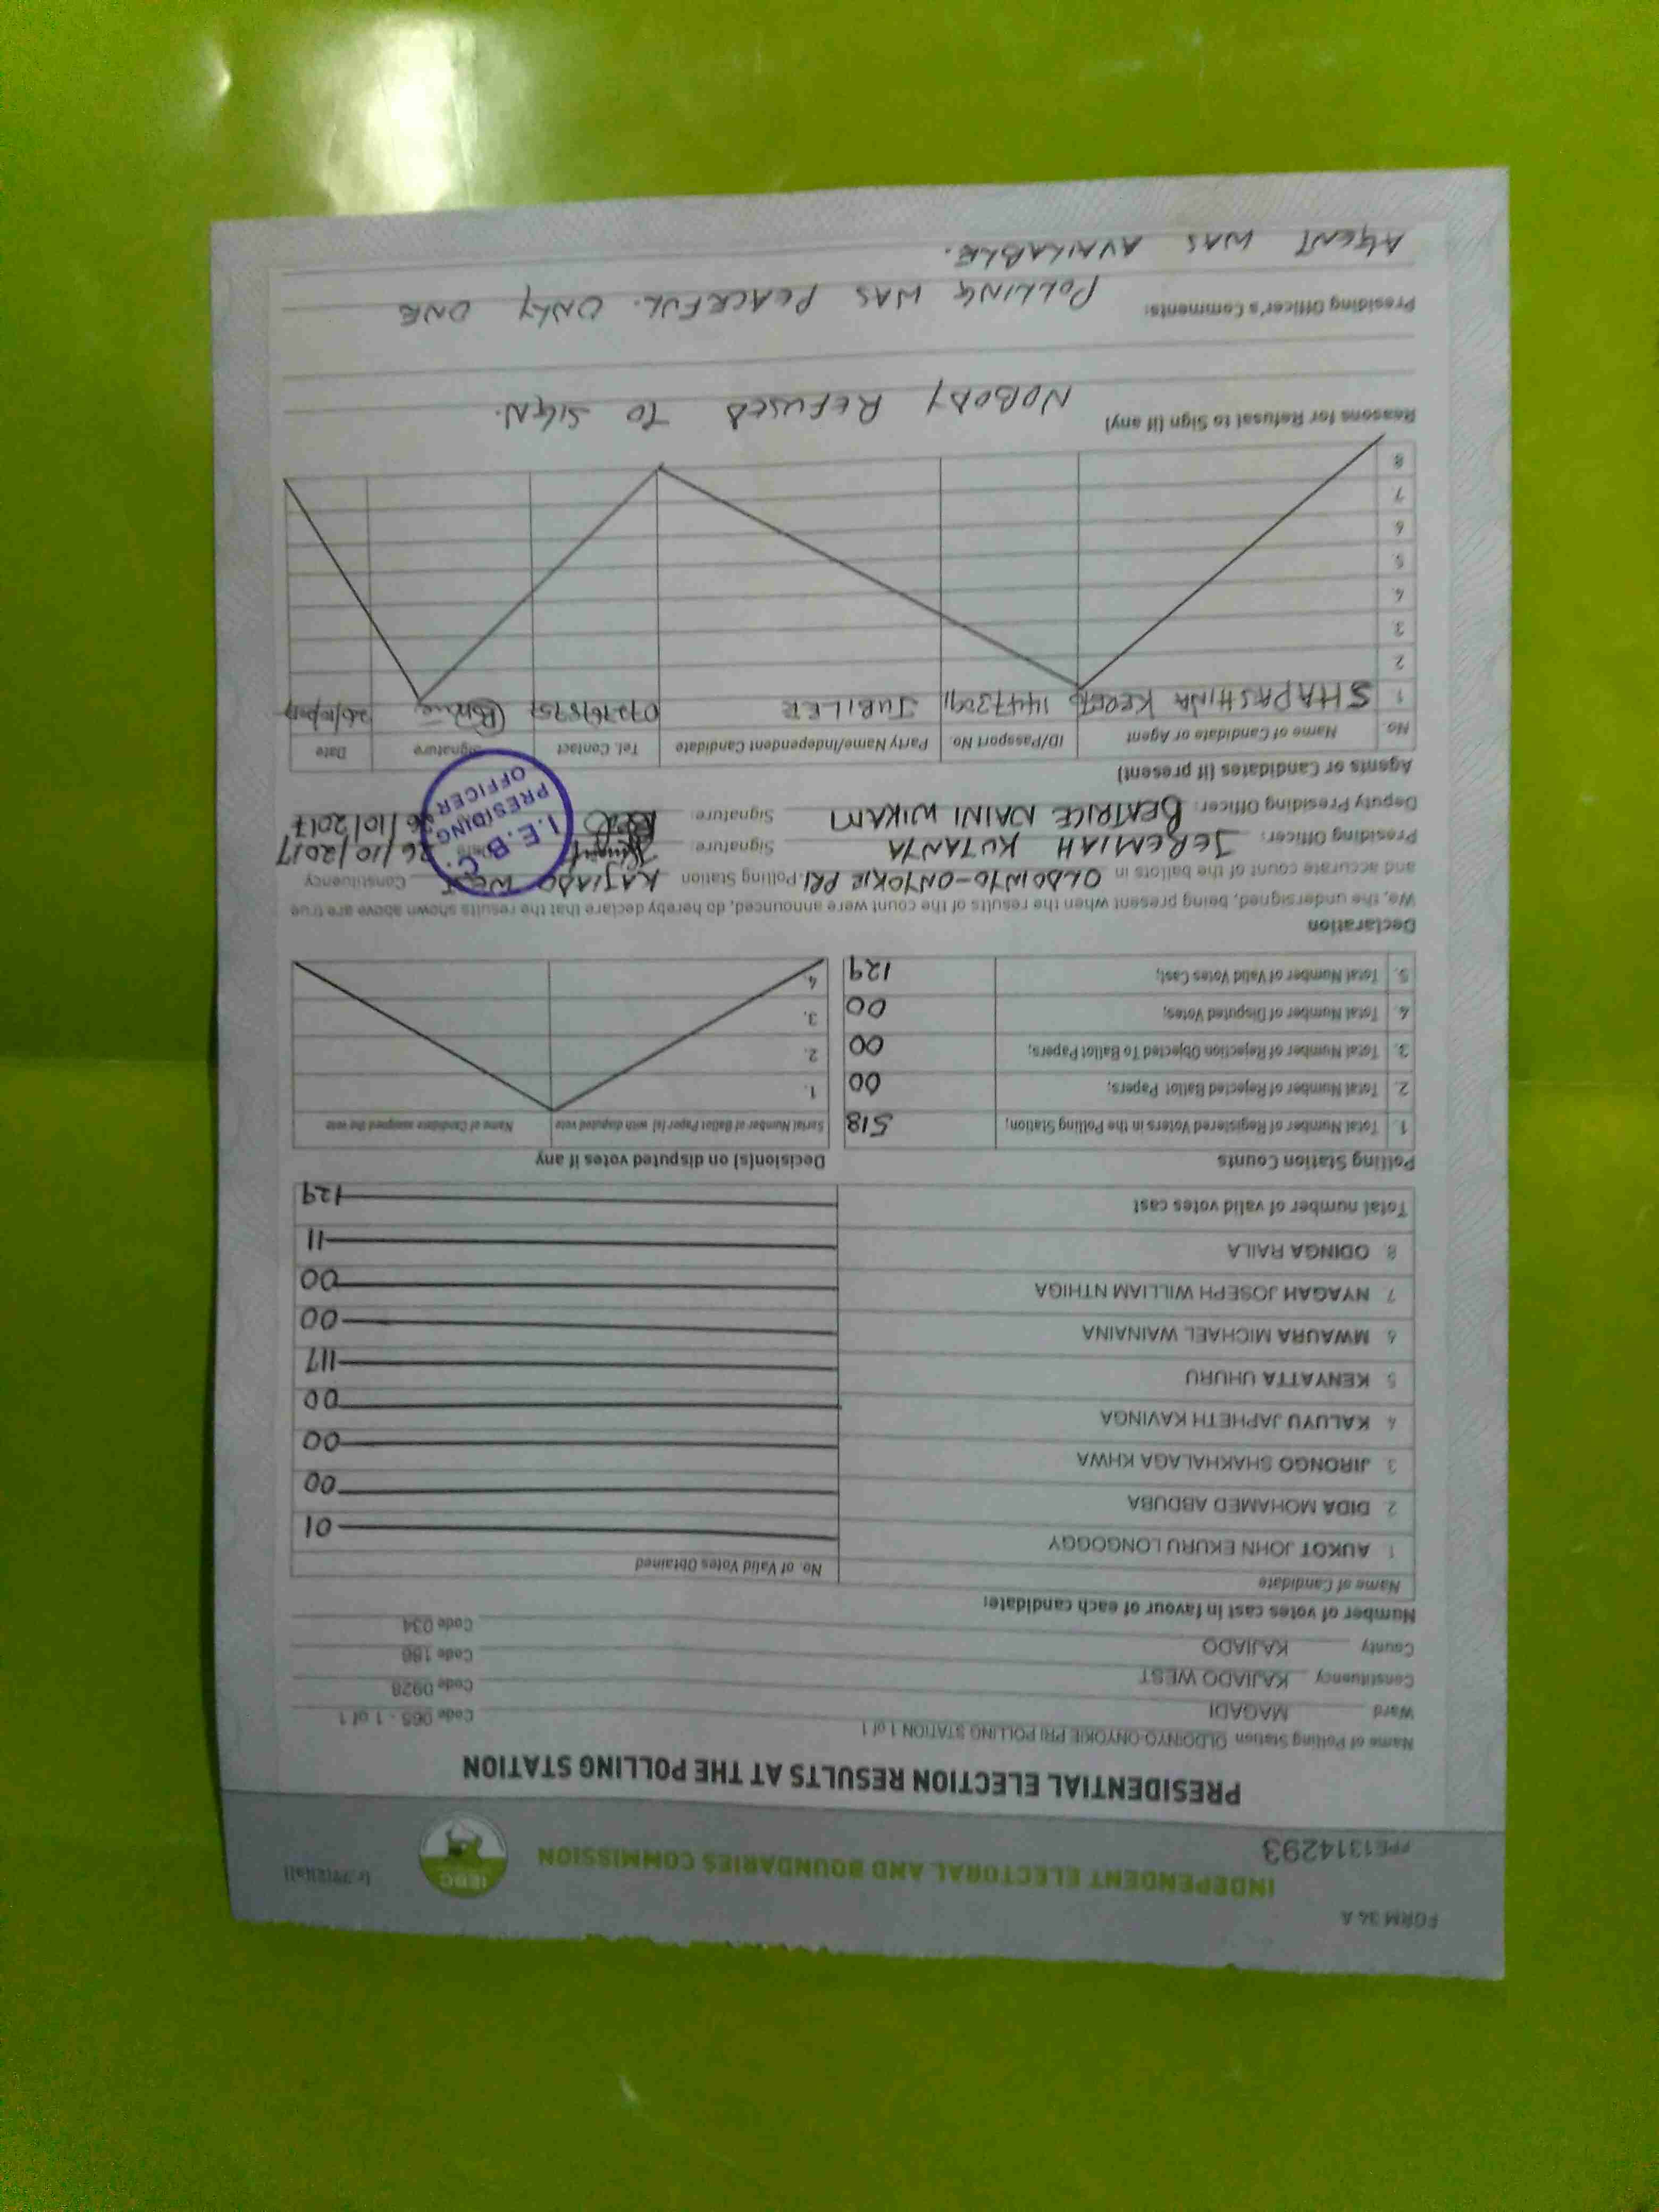 FORM 34 A
INDEPENDENT ELECTORAL AND BOUNDARIES COMMISSION
IEBC
PPE1314293
PRESIDENTIAL ELECTION RESULTS AT THE POLLING STATION
Name of Polling Station OLDOINYO-ONYOKIE PRI POLLING STATION 1 of 1 Code 065 - 1 of 1
Ward MAGADI Code 0928
Constituency KAJIADO WEST Code 186
County KAJIADO Code 034
Number of votes cast in favour of each candidate:
Name of Candidate No. of Valid Votes Obtained
1 AUKOT JOHN EKURU LONGOGGY 01
2 DIDA MOHAMED ABDUBA 00
3 JIRONGO SHAKHALAGA KHWA 00
4 KALUYU JAPHETH KAVINGA 00
5 KENYATTA UHURU 117
6 MWAURA MICHAEL WAINAINA 00
7 NYAGAH JOSEPH WILLIAM NTHIGA 00
8 ODINGA RAILA 11
Total number of valid votes cast 129
Polling Station Counts
1. Total Number of Registered Voters in the Polling Station; 518
2. Total Number of Rejected Ballot Papers; 00
3. Total Number of Rejection Objected To Ballot Papers; 00
4. Total Number of Disputed Votes; 00
5. Total Number of Valid Votes Cast; 129
Decision(s) on disputed votes if any
Serial Number of Ballot Paper (s) with disputed vote Name of Candidate assigned the vote
1.
2.
3.
4.
Declaration
We, the undersigned, being present when the results of the count were announced, do hereby declare that the results shown above are true
and accurate count of the ballots in OLDOINYO-ONYOKIE PRI. Polling Station KAJIADO WEST Constituency
Presiding Officer: JEREMIAH KUTANTA Signature: 26/10/2017
Deputy Presiding Officer: BEATRICE NAINI WIKAM Signature: 26/10/2017
I.E.B.C.
PRESIDING
OFFICER
Agents or Candidates (if present)
No Name of Candidate or Agent ID/Passport No. Party Name/Independent Candidate Tel. Contact Signature Date
1 SHAPASHINA 14473091 JUBILEE
2
3
4
5
6
7
8
Reasons for Refusal to Sign (if any)
NOBODY REFUSED TO SIGN.
Presiding Officer's Comments:
POLLING WAS PEACEFUL. ONLY ONE
AGENT WAS AVAILABLE.